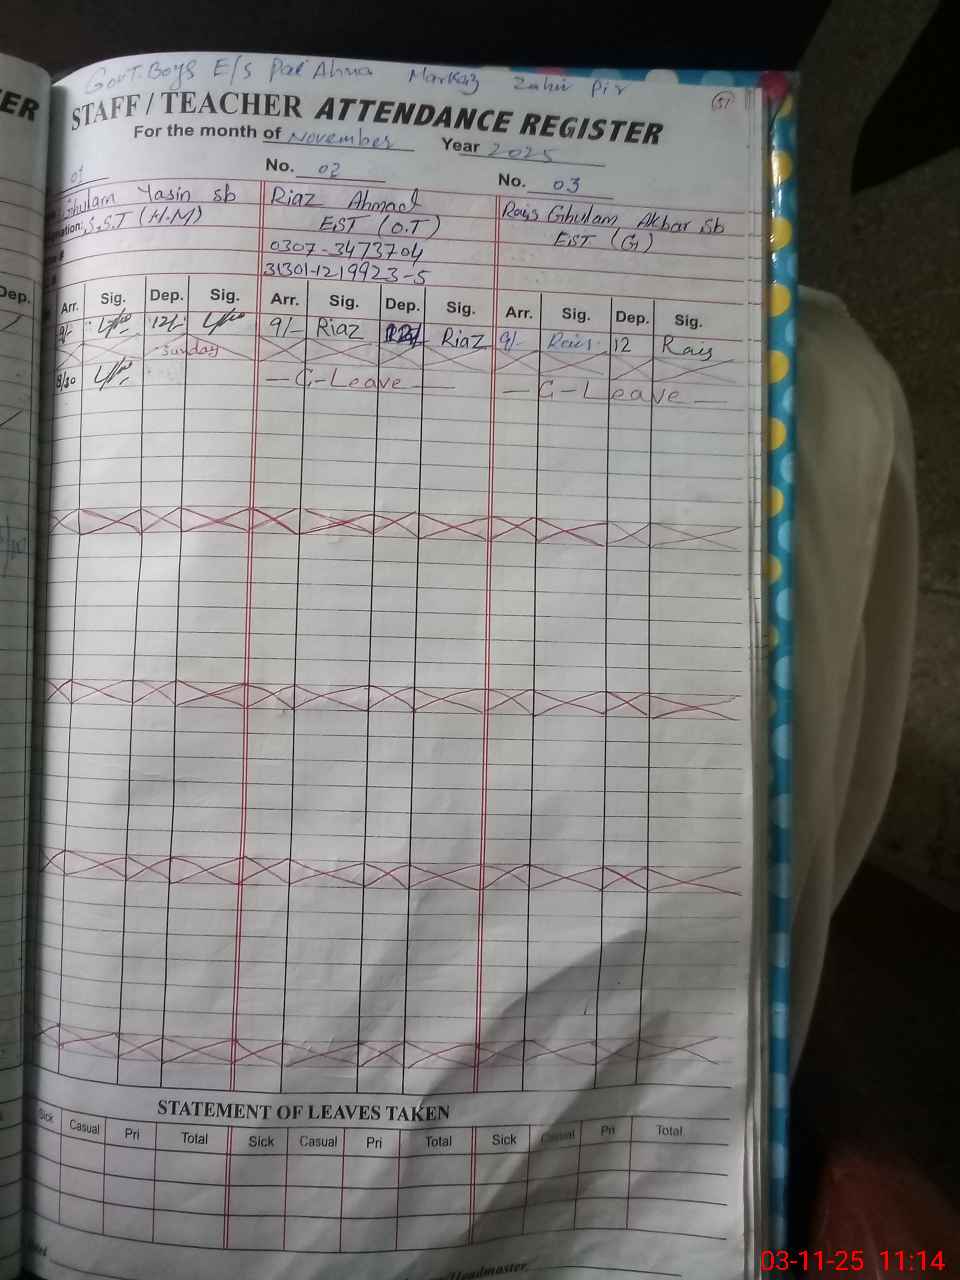 Govt. Boys E/S Pat Ahma Markaz Zahir Pir
51
STAFF / TEACHER ATTENDANCE REGISTER
For the month of November Year 2025
01 No. 02 No. 03
Ghulam Yasin sb Riaz Ahmad Rais Ghulam Akbar sb
nation: S.S.T (H.M) EST (O.T) EST (G)
0307-3473704
31301-1219923-5
Dep. Arr. Sig. Dep. Sig. Arr. Sig. Dep. Sig. Arr. Sig. Dep. Sig.
9/- 12/- 9/- Riaz Riaz 9/- Rais 12 Rais
Sunday
8/30 - G-Leave - - G-Leave -
STATEMENT OF LEAVES TAKEN
Sick Casual Pri Total Sick Casual Pri Total Sick Casual Pri Total
Headmaster
03-11-25 11:14